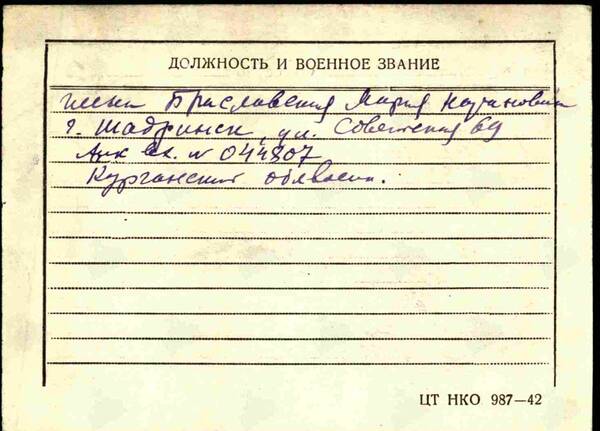 ДОЛЖНОСТЬ И ВОЕННОЕ ЗВАНИЕ
Браславская Мария Натановна
г. Шадринск, ул. Советская 69
№ 044807
Курганский области.
ЦТ НКО 987—42